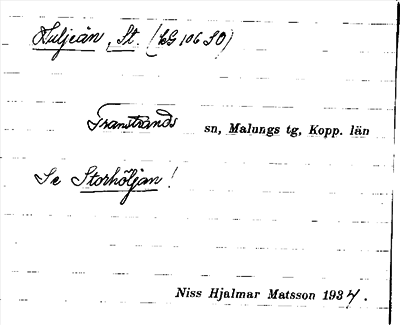 Huljeån, St. (LG 106 SO)
Transtrands sn, Malungs tg, Kopp. län
Se Storhöljan!
Niss Hjalmar Matsson 1934.